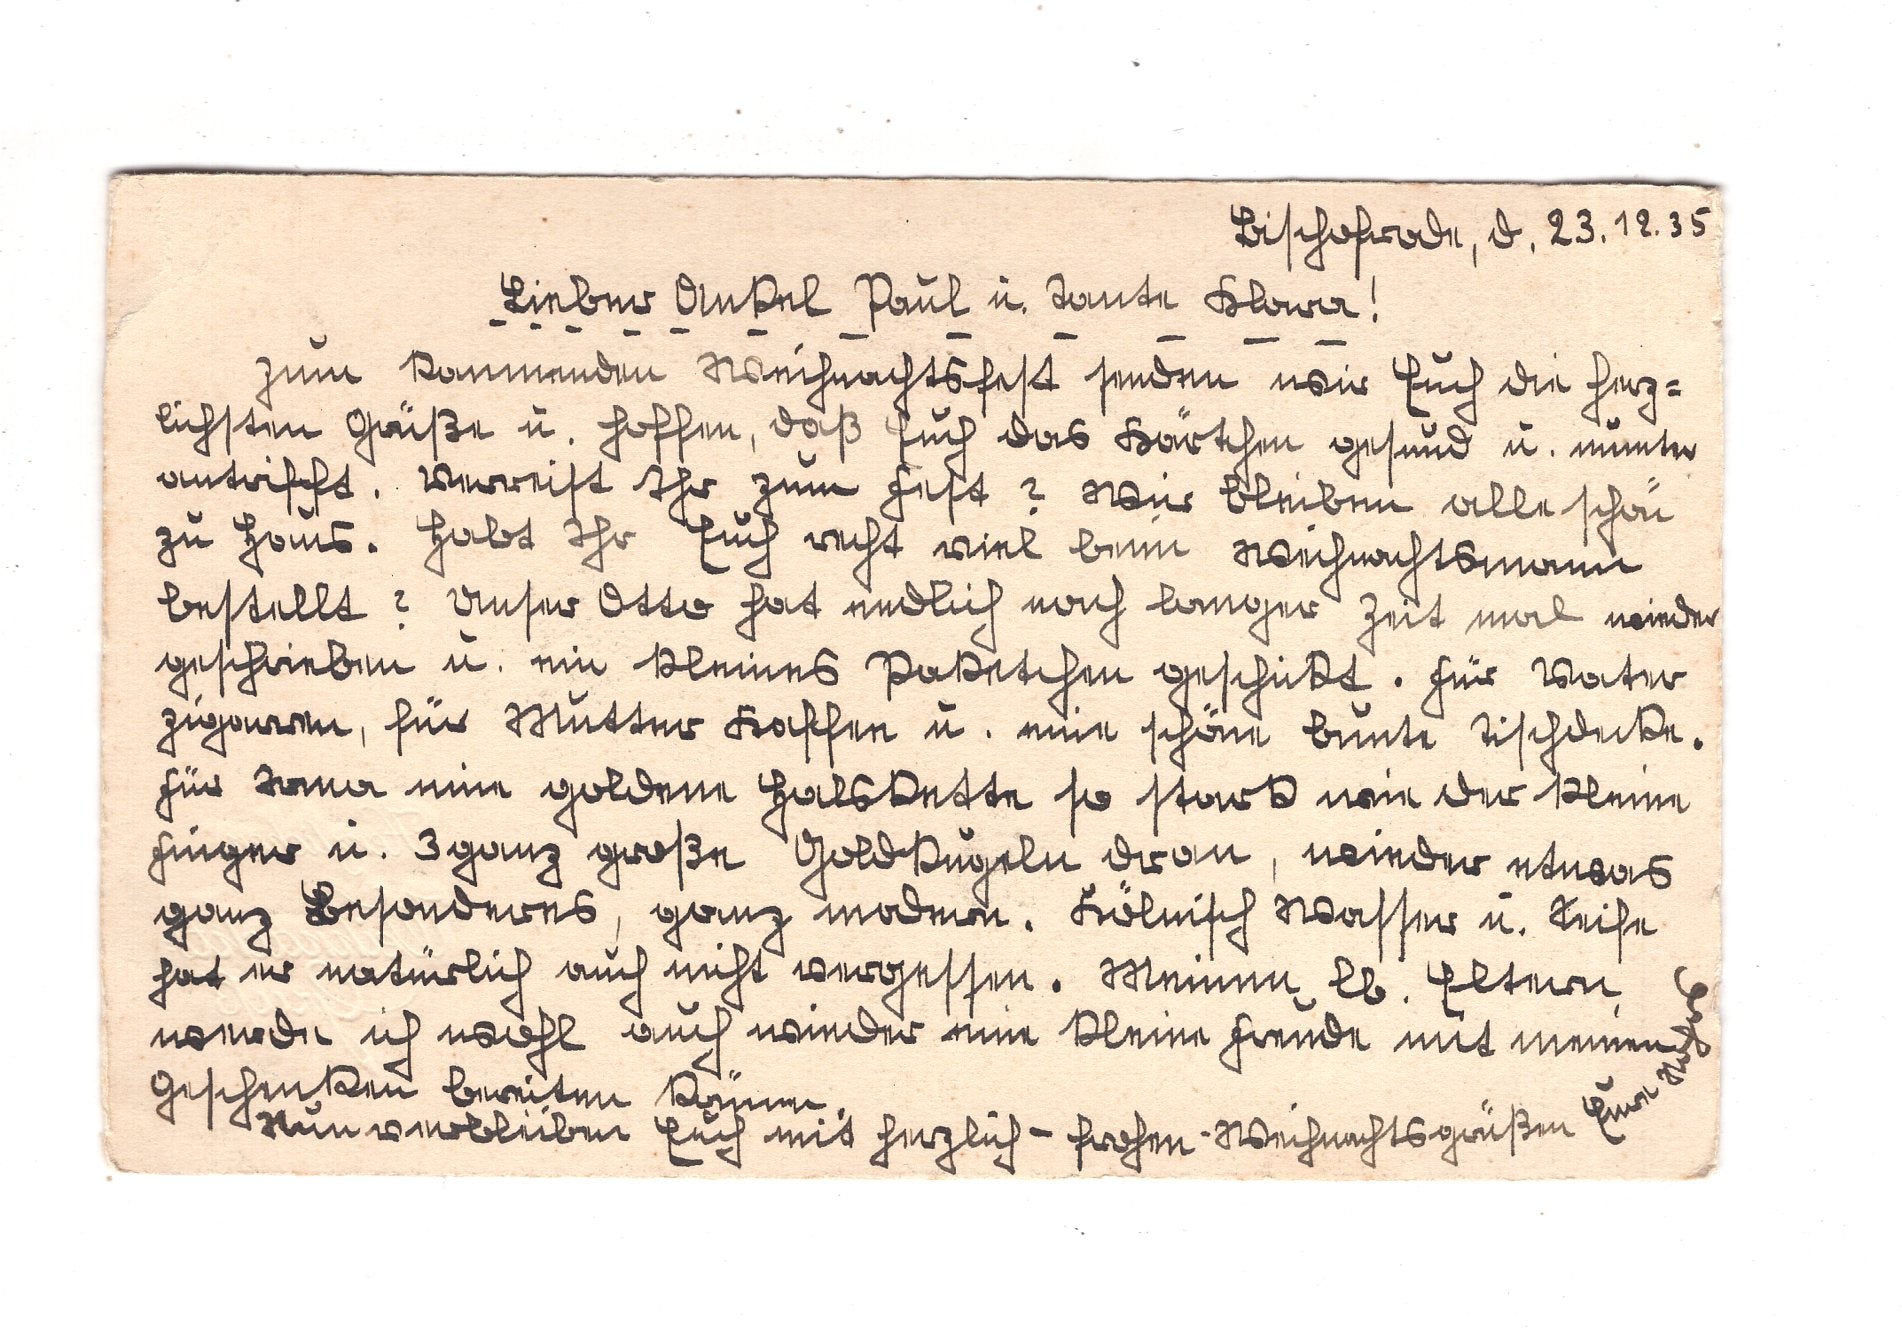 Bischofrode, d. 23.12.35
Lieber Onkel Paul u. Tante Klara!
Zum kommenden Weihnachtsfest senden wir Euch die herz=
lichsten Grüße u. hoffen, daß Euch das Kärtchen gesund u. munter
antrifft. Verreist Ihr zum Fest? Wir bleiben alle schön
zu Haus. Habt Ihr Euch recht viel beim Weihnachtsmann
bestellt? Unser Otto hat endlich nach langer Zeit mal wieder
geschrieben u. ein kleines Paketchen geschickt. Für Vater
Zigarren, für Mutter Kaffee u. eine schöne bunte Tischdecke.
Für eine goldene Halskette so stark wie der kleine
Finger u. 3 ganz große Goldkugeln dran, wieder etwas
ganz Besonderes, ganz modern. Kölnisch Wasser u. Seife
hat er natürlich auch nicht vergessen. Meinen lb. Eltern
werde ich wohl auch wieder eine kleine Freude mit meinen
Geschenken bereiten können.
Nun verbleiben Euch mit herzlich-frohen-Weihnachtsgrüßen Eure